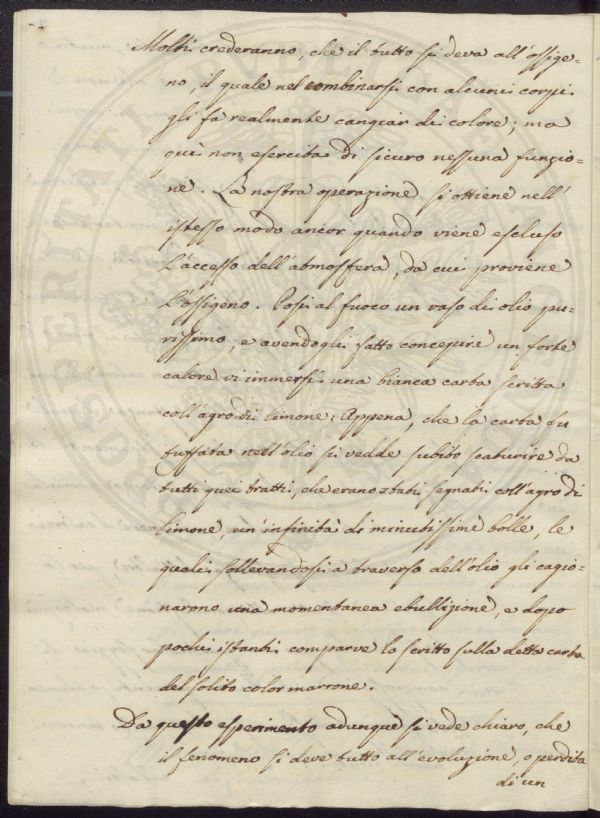 Molti crederanno, che il tutto si deva all'ossige-
no, il quale nel combinarsi con alcuni corpi
gli fà realmente cangiar di colore; ma
quì non esercita di sicuro nessuna funzio-
ne. La nostra operazione si ottiene nell'
istesso modo ancor quando viene escluso
l'accesso dell'atmosfera, da cui proviene
l'ossigeno. Posi al fuoco un vaso di olio pu-
rissimo, e avendogli fatto concepire un forte
calore vi immersi una bianca carta scritta
coll'agro di limone: Appena, che la carta fu
tuffata nell'olio si vedde subito scaturire da
tutti quei tratti, che erano stati segnati coll'agro di
limone, un'infinità di minutissime bolle, le
quali sollevandosi a traverso dell'olio gli cagio-
narono una momentanea ebullizione, e dopo
pochi istanti comparve lo scritto sulla detta carta
del solito color marrone.
Da questo esperimento adunque si vede chiaro, che
il fenomeno si deve tutto all'evoluzione, o perdita
di un